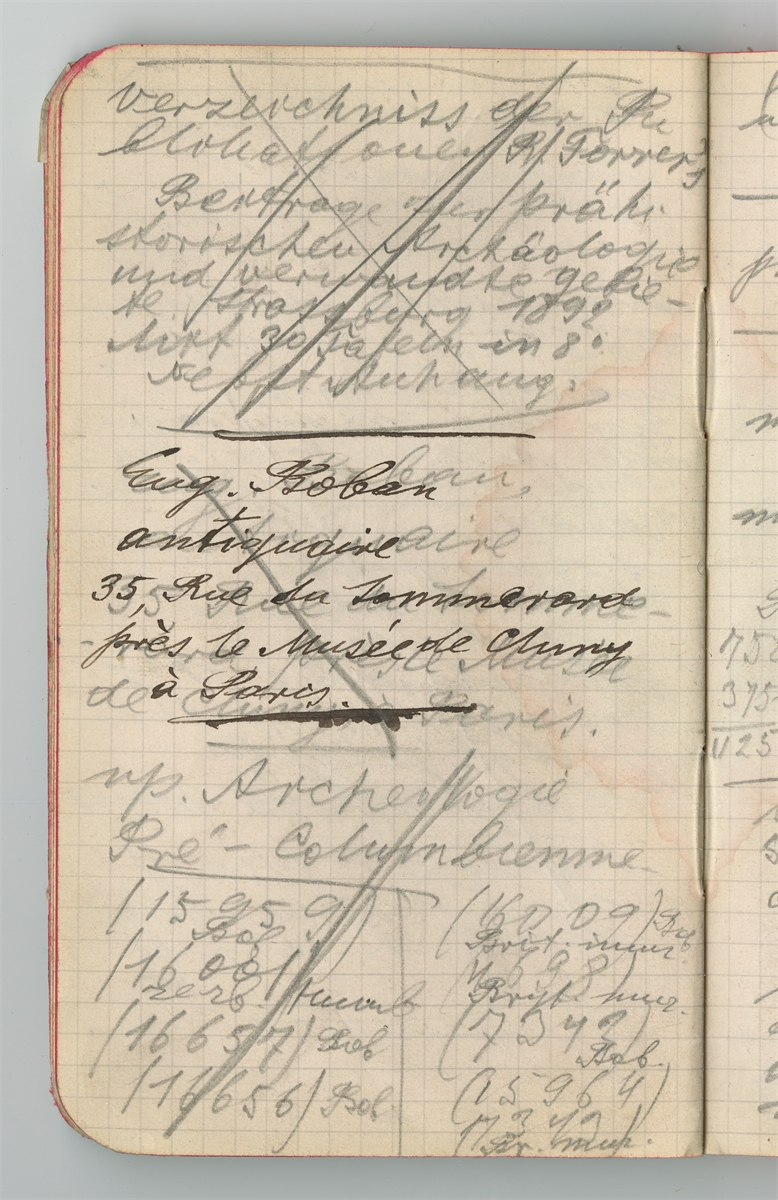 Verzeichniss der Pu
blikationen R. Forrer's
Beitrage zur prähi
storischen Archäologie
und verwandte gebie-
te Strassburg 1892
Mitt 30 Tafeln in 8º
Nebst Anhang.
Eug. Boban
antiquaire
35, Rue du Sommerard
près le Musée de Cluny
à Paris.
Eug. Boban,
antiquaire
35 Rue du Somme-
rard près le Musée
de Cluny à Paris.
np. Archeologie
Pré-Columbienne
(15959)
Bob
(16001)
(16657) Bob
(16656) Bob.
(16009) Bob
Brit. muz.
Bryt. muz.
(7342)
Bob.
(15964)
Br. muz.
758
375
1125